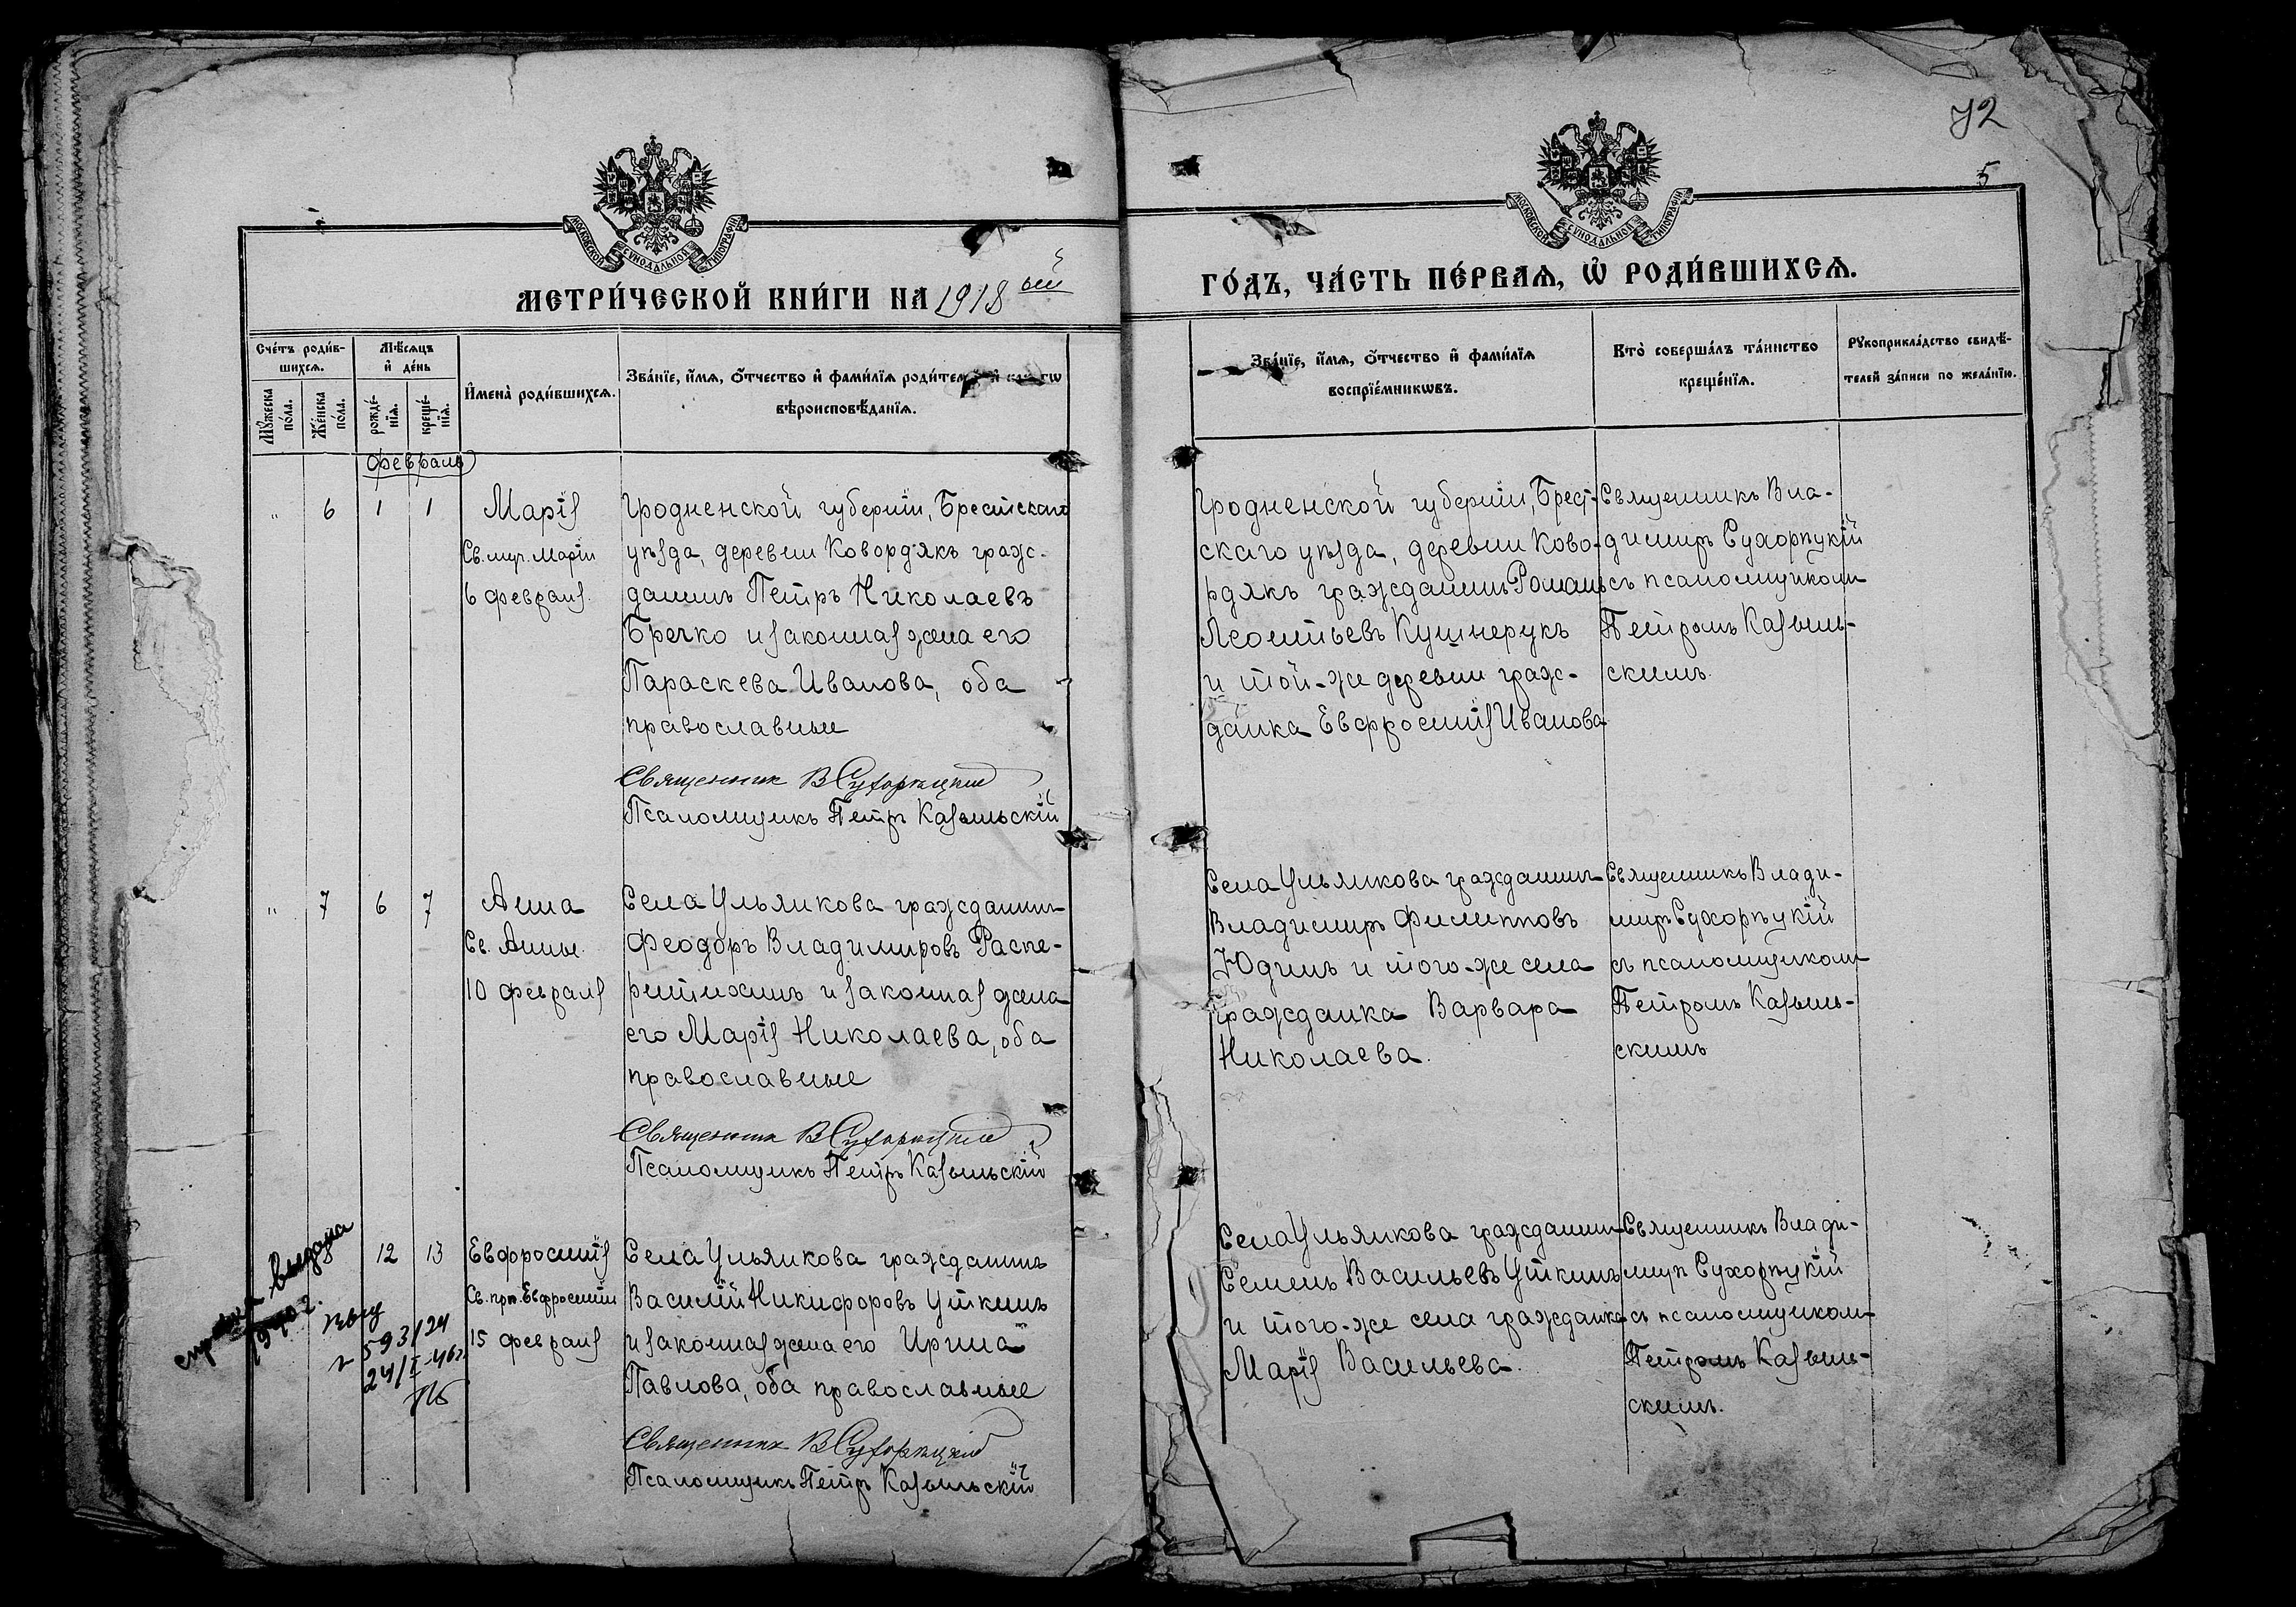 72
5
МОСКОВСКОЙ СѴНОДАЛЬНОЙ ТИПОГРАФІИ
МОСКОВСКОЙ СѴНОДАЛЬНОЙ ТИПОГРАФІИ
МЕТРИ́ЧЕСКОЙ КНИ́ГИ НА 1918ый
ГО́ДЪ, ЧА́СТЬ ПЕ́РВАЯ, Ѡ҆ РОДИ́ВШИХСЯ.
Сче́тъ роди́в-
шихся.
Мꙋжеска
по́ла.
Же́нска
по́ла.
Мѣ́сяцъ
и҆ де́нь
рожде́-
нїя.
креще́-
нїя.
И҆мена̀ роди́вшихся.
Зва́нїе, и҆́мя, ѻ҆́тчество и҆ фами́лїя
вѣроисповѣ́данїя.
Зва́нїе, и҆́мя, ѻ҆́тчество и҆ фами́лїя
воспрїе́мникѡвъ.
Кто̀ соверша́лъ та́инство
креще́нїя.
Рꙋкоприкла́дство свидѣ́-
телей за́писи по жела́нїю.
Февраль
" 6 1 1
Марія
Св. муч. Маріи
6 февраля.
Гродненской губерніи, Брестскаго
уѣзда, деревни Ковордякъ граж-
данинъ Петръ Николаевъ
Бречко и законная жена его
Параскева Иванова, оба
православные
Священник В Сухорѣцкій
Псаломщикъ Петръ Казыльскій
Гродненской губерніи, Брест-
скаго уѣзда, деревни Ково-
рдякъ гражданинъ Романъ
Леонтьевъ Кушнерукъ
и той-же деревни граж-
данка Евфросинія Иванова
Священникъ Вла-
димиръ Сухорѣцкій
съ псаломщикомъ
Петромъ Казыль-
скимъ.
" 7 6 7
Анна
Св. Анны.
10 февраля
Села Ульянкова гражданинъ
Феодоръ Владимировъ Распе-
и законная жена
его Марія Николаева, оба
православные
Священник В Сухорѣцкій
Псаломщикъ Петръ Казыльскій
Села Ульянкова гражданинъ
Владимиръ Филипповъ
Юдинъ и того-же села
гражданка Варвара
Николаева.
Священникъ Влади-
миръ Сухорѣцкій
съ псаломщикомъ
Петромъ Казыль-
скимъ
справка выдана
24/I-46г.
12 13
Евфросинія
Св. прп. Евфросиніи
15 февраля
Села Ульянкова гражданинъ
Василій Никифоровъ Уткинъ
и законная жена его Ирина
Павлова, оба православные
Священник В Сухорѣцкій
Псаломщикъ Петръ Казыльскій
Села Ульянкова гражданинъ
Семенъ Васильевъ Уткинъ
и того-же села гражданка
Марія Васильева.
Священникъ Влади-
миръ Сухорѣцкій
съ псаломщикомъ
Петромъ Казыль-
скимъ.